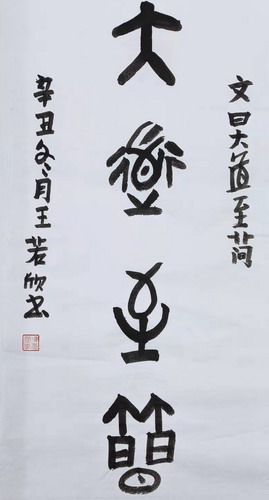 文曰大道至简
大道至簡
辛丑冬月王若欣书